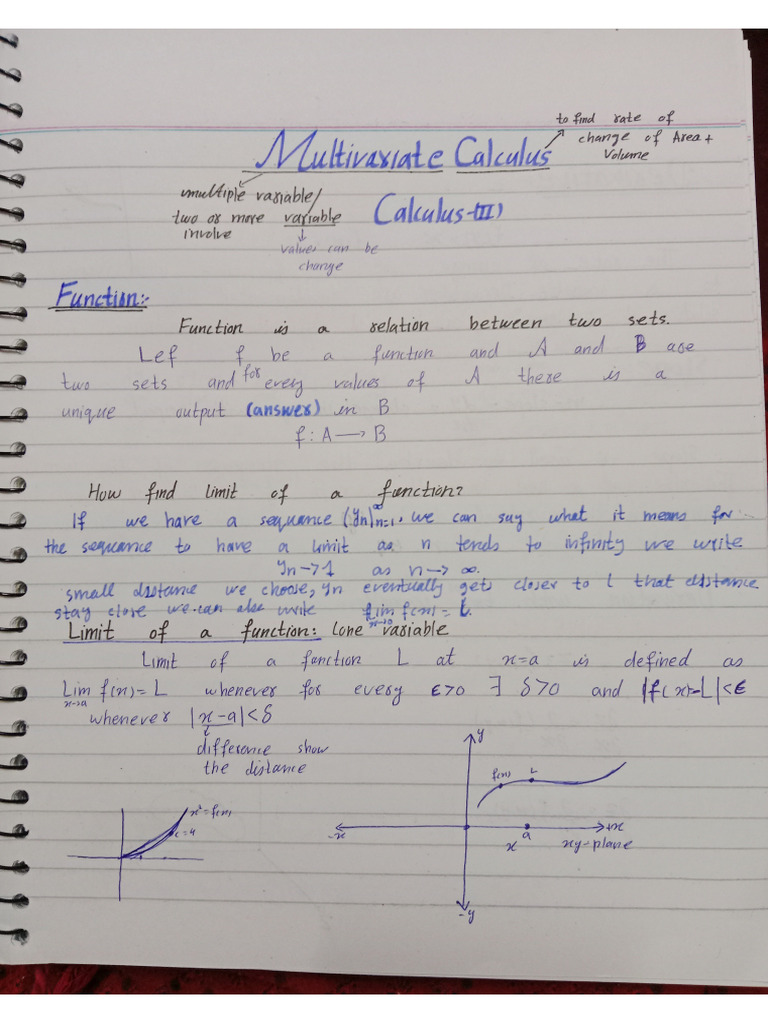 to find rate of
change of Area +
Volume
Multivariate Calculus
multiple variable/
two or more variable
involve
Calculus-(III)
values can be
change
Function:-
Function is a relation between two sets.
Let f be a function and A and B are
two sets and for every values of A there is a
unique output (answer) in B
f : A → B
How find limit of a function?
If we have a sequance (yn)∞n=1, we can say what it means for
the sequance to have a limit as n tends to infinity we write
yn → 1 as n → ∞.
small distance we choose, yn eventually gets closer to l that distance
stay close we can also write lim f(x) = L.
Limit of a function: (one variable
Limit of a function L at x=a is defined as
Lim f(x) = L whenever for every ε>0 ∃ δ>0 and |f(x)-L|<ε
x→a
whenever |x-a|<δ
difference show
the distance
y
f(x) L
x²=f(x)
c=4
-x +x
x a xy-plane
-y